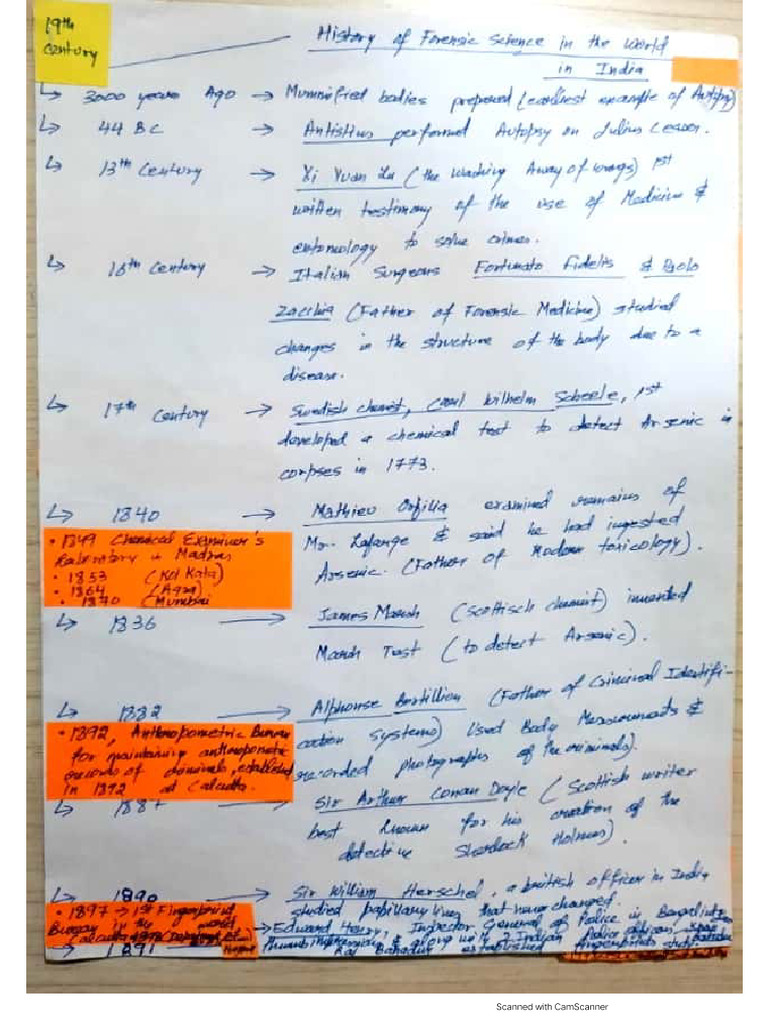 19th
century
History of Forensic Science in the World
in India
↳ 3000 years Ago → Mummified bodies prepared (earliest example of Autopsy)
↳ 44 BC → Antistius performed Autopsy on Julius Ceaser.
↳ 13th Century → Xi Yuan Lu (the Washing Away of wrongs) 1st
written testimony of the use of Medicine &
entomology to solve crimes.
↳ 16th Century → Italian Surgeons Fortunato Fidelis & Paolo
Zacchia (Father of Forensic Medicine) studied
changes in the structure of the body due to a
disease.
↳ 17th Century → Swedish chemist, Carl Wilhelm Scheele, 1st
developed a chemical test to detect Arsenic in
corpses in 1773.
↳ 1840 → Mathieu Orfilia examined remains of
Mr. Lafarge & said he had ingested
Arsenic. (Father of Modern toxicology).
• 1849 Chemical Examiner's
Laboratory in Madras
• 1853 (Kolkata)
• 1864 (Agra)
• 1870 (Mumbai
↳ 1836 → James Marsh (Scottisch chemist) invented
Marsh Test (to detect Arsenic).
↳ 1882 Alphonse Bertillion (Father of Criminal Identifi-
cation Systems) Used Body Measurements &
recorded photographs of the criminals).
• 1892, Anthropometric Bureau
for maintaining anthropometric
records of criminals, established
in 1892 at Calcutta.
↳ 1887 → Sir Arthur Conan Doyle (Scottish writer
best known for his creation of the
detective Sherlock Holmes).
↳ 1890 → Sir William Herschel, a british officer in India
studied papillary lines that never changed.
• 1897 → 1st Fingerprint
Bureau in the world
Calcutta
→ Edward Henry, Inspector General of Police in Bengal
& along with 2 Indian Police officers
Rai Bahadur established fingerprints study.
↳ 1891
Scanned with CamScanner